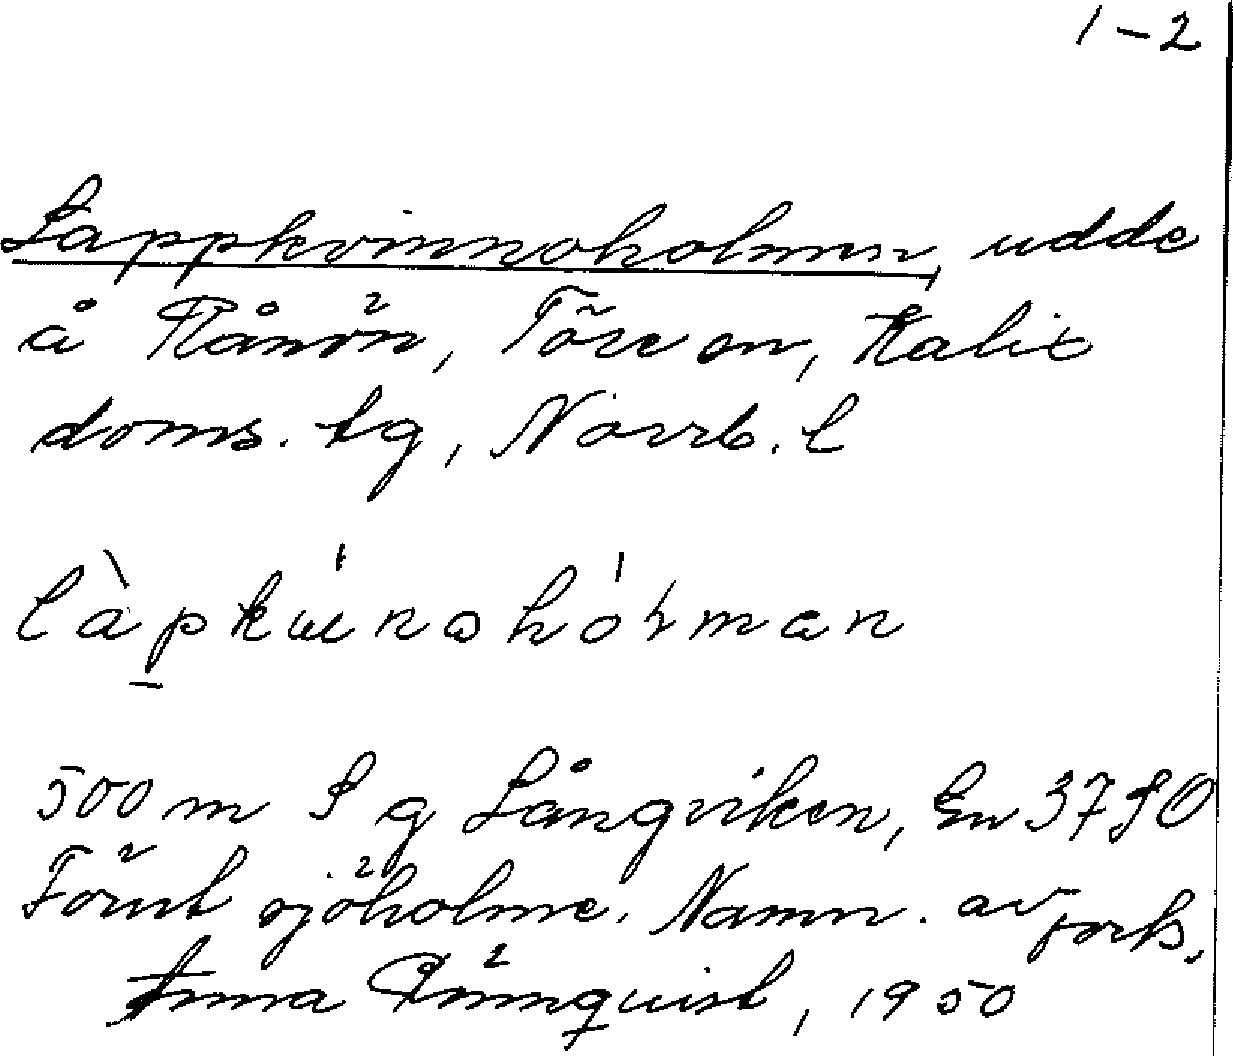 1-2
Lappkvinnoholmen, udde
å Rånön, Töre sn, Kalix
doms. tg, Norrb. l
500 m S g Långviken, En 3790
Förut sjöholme. Namn. av
Anna Rönnquist, 1950